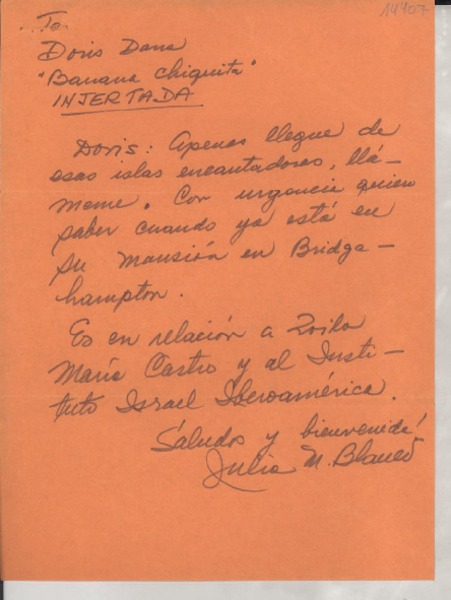 14707
To
Doris Dana
"Banana Chiquita"
INJERTADA
Doris: Apenas llegue de
esas islas encantadores, llá-
meme. Con urgencia quiero
saber cuando ya está en
su mansión en Bridga-
hampton.
Es en relación a Zoila
María Castro y al Insti-
tuto Israel Iberoamérica.
Saludos y bienvenida!
Julia M. Blanco